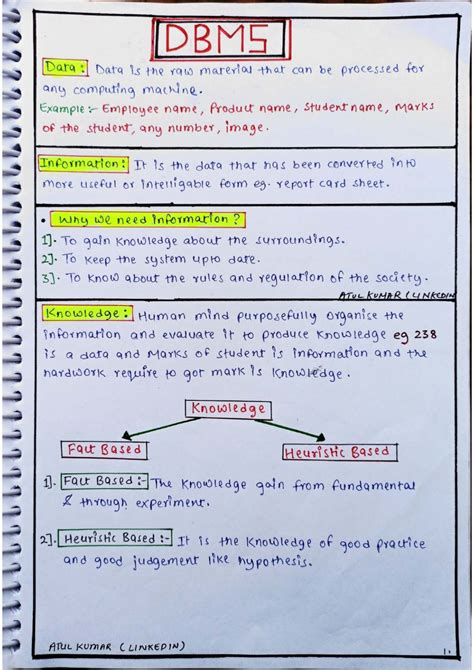 DBMS
Data: Data is the raw material that can be processed for
any computing machine.
Example:- Employee name, Product name, Student name, Marks
of the student, any number, image.
Information: It is the data that has been converted into
more useful or intelligable form eg. report card sheet.
• Why we need information?
1]. To gain knowledge about the surroundings.
2]. To keep the system upto date.
3]. To know about the rules and regulation of the society.
ATUL KUMAR (LINKEDIN
Knowledge: Human mind purposefully organise the
information and evaluate it to produce knowledge eg 238
is a data and Marks of student is information and the
hardwork require to got mark is Knowledge.
Knowledge
Fact Based
Heuristic Based
1]. Fact Based:- The knowledge gain from fundamental
& through experiment.
2]. Heuristic Based:- It is the knowledge of good practice
and good judgement like hypothesis.
ATUL KUMAR (LINKEDIN)
1.